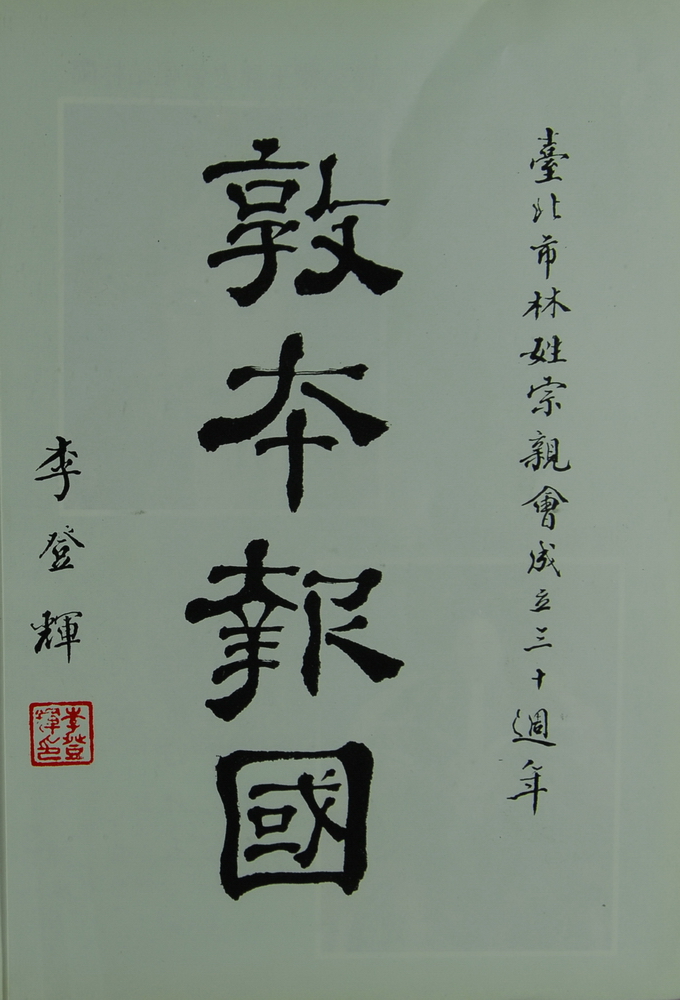 臺北市林姓宗親會成立三十週年
敦本報國
李登輝
李登
輝印